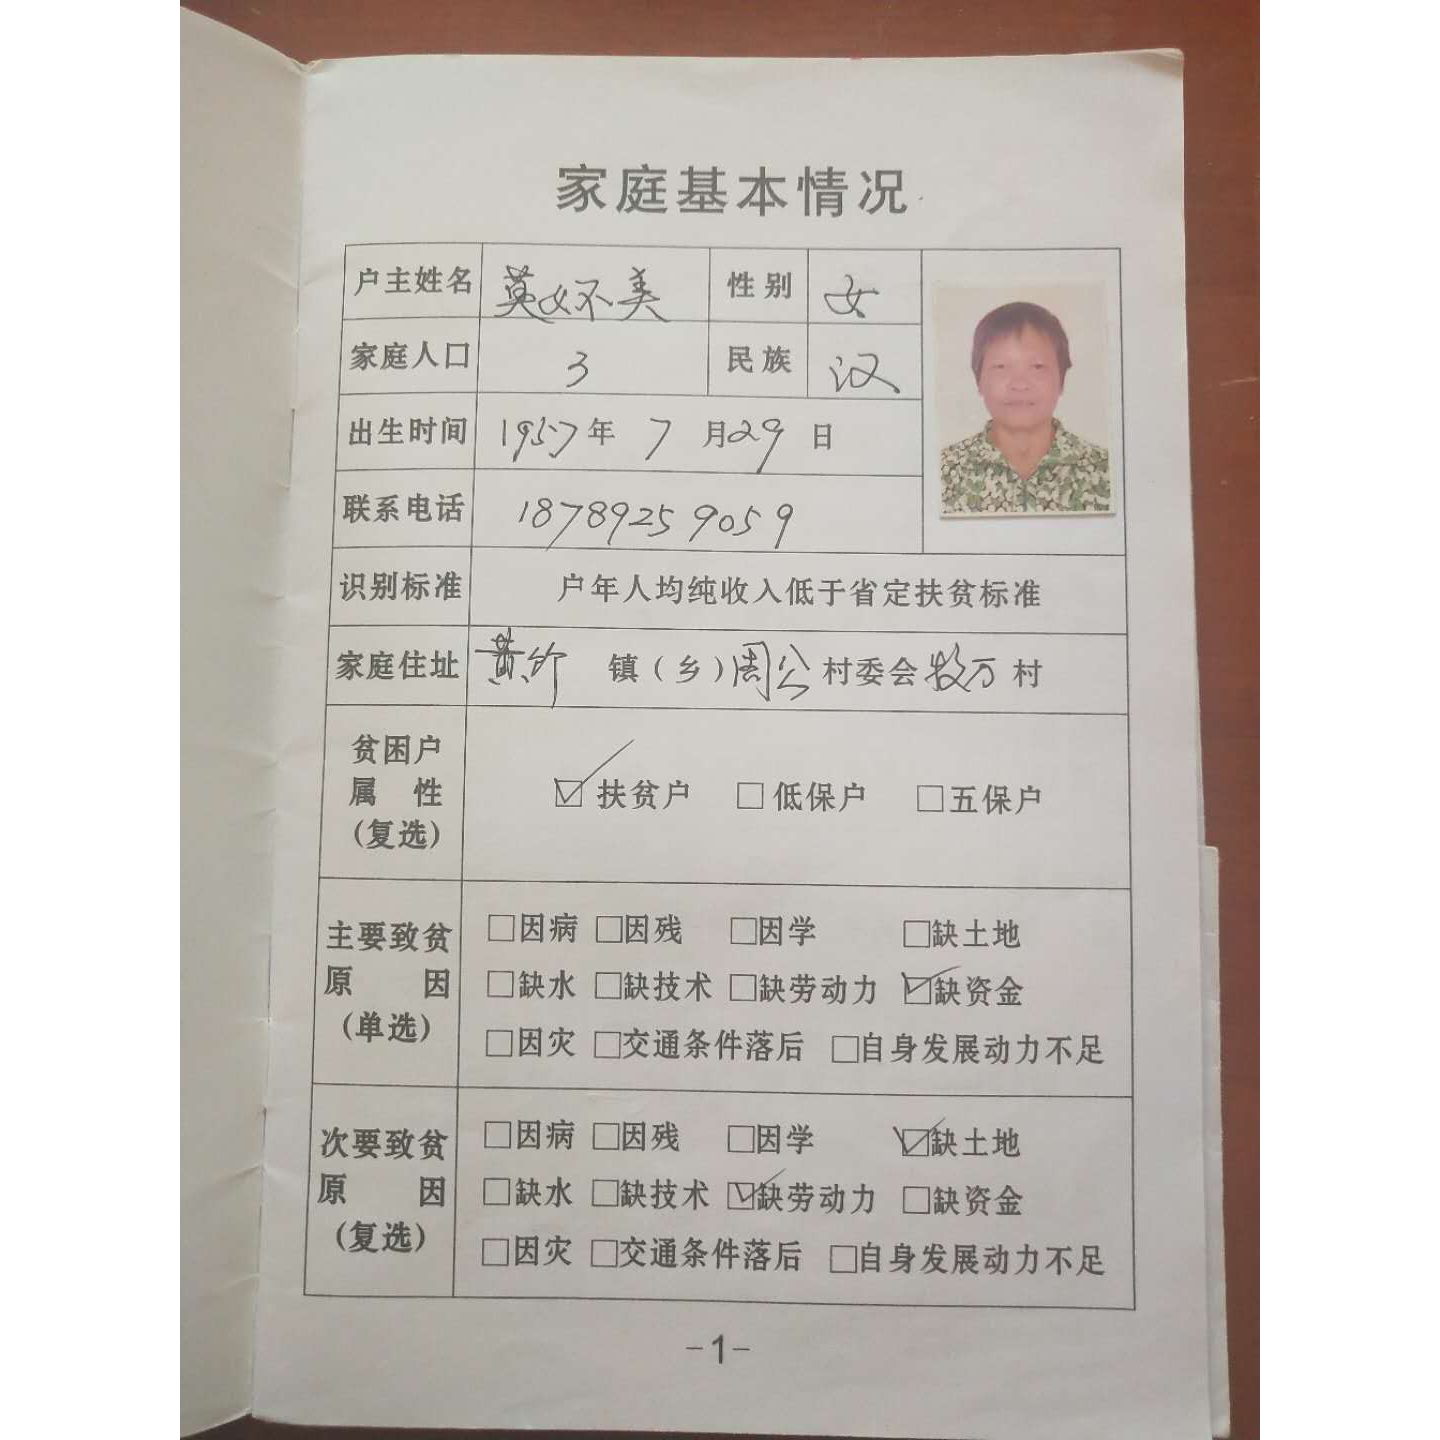 家庭基本情况
户主姓名 英女不美 性别 女
家庭人口 3 民族 汉
出生时间 1957年 7 月29 日
联系电话 18789259059
识别标准 户年人均纯收入低于省定扶贫标准
家庭住址 黄竹 镇(乡)周公村委会牧万村
贫困户
属 性
(复选)
☑扶贫户 □低保户 □五保户
主要致贫
原 因
(单选)
□因病 □因残 □因学 □缺土地
□缺水 □缺技术 □缺劳动力 ☑缺资金
□因灾 □交通条件落后 □自身发展动力不足
次要致贫
原 因
(复选)
□因病 □因残 □因学 ☑缺土地
□缺水 □缺技术 ☑缺劳动力 □缺资金
□因灾 □交通条件落后 □自身发展动力不足
-1-